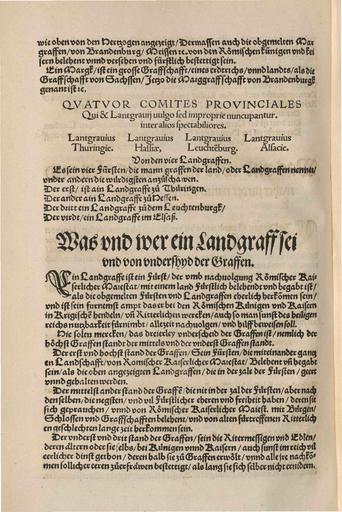 wie oben von den Hertzogen angezeigt/Dermassen auch die obgemelten Mar
graffen/von Brandenburg/Meissen ꝛc. von den Römischen künigen vnd kei
sern belehent vnnd versehen vnd fürstlich bestettigt sein.
Ein Margk/ist ein grosse Graffschafft/eines erdtrichs/vnnd landts/als die
Graffschafft von Sachssen/Jetzo die Marggraffschafft von Brandenburgk
genant ist ꝛc.
QVATVOR COMITES PROVINCIALES
Qui & Lantgrauij uulgo sed improprie nuncupantur.
inter alios spectabiliores.
Lantgrauius Lantgrauius Lantgrauius Lantgrauius
Thuringie. Hassiæ, Leuchtēburg. Alsacie.
Von den vier Landgraffen.
Es sein vier Fürsten/die mann graffen der land/oder Landgraffen nennt/
vnder anden die wirdigisten anzuschawen.
Der erst/ist ain Landgraffe zů Thüringen.
Der ander ain Landgraffe zů Hessen.
Der dritt ein Landgraffe zů dem Leuchtenburgk/
Der vierde/ein Landgraffe im Elsaß.
Was vnd wer ein Landgraff sei
vnd von vndershyd der Graffen.
Ein Landgraffe ist ein Fürst/der vmb nachuolgung Römischer Kai-
serlicher Maiestat/mit einem land Fürstlich belehendt vnd begabt ist/
als die obgemelten Fürsten vnd Landgraffen eherlich herkomen sein/
vnd ist sein furnemst ampt das er bei den Römischen Künigen vnd Kaisern
in Krigischē hendeln/vn̄ Ritterlichen wercken/auch so man sunst des heiligen
reichs nutzbarkeit fürnimbt/allzeit nachuolgen/vnd hilff beweisen soll.
Nie solen mercken/das drierley vnderscheid der Graffen ist/nemlich der
höchst Graffen standt der mittels vnd der vnderst Graffen standt.
Der erst vnd hochst stand der Graffen/Sein Fürsten/die miteinander gang
en Landschafft/von Römischer Kaiserlicher Maiestat/Belehent vn̄ begabt
sein/als die oben angezeigten Landgraffen/die in der zale der Fürsten/geert
vnnd gehalten werden.
Der mittelst ander stand der Graffē/die nit in der zal der Fürsten/aber nach
den selben/die negsten/vnd vil Fürstlicher eheren vnd freiheit haben/deren sie
sich geprauchen/vnnd von Römischer Kaiserlicher Maiest. mit Bürgen/
Schlossen vnd Graffschafften belehent/vnd von alten fürtreffenen Ritterlich
en geschlechten lange zeit herkommen sein.
Der vnderst vnd drit stand der Graffen/sein die Rittermessigen vnd Edlen/
deren ältern oder sie selbs/bei Künigen vnnd Kaisern/auch sunst im reich vil
eerlicher dinst gethon/deren halb sie zů Graffen erwölt/vnnd alle jre nachkō-
men sollicher eeren zů erfräwen bestettigt/als lang sie sich selber nicht ernidern.